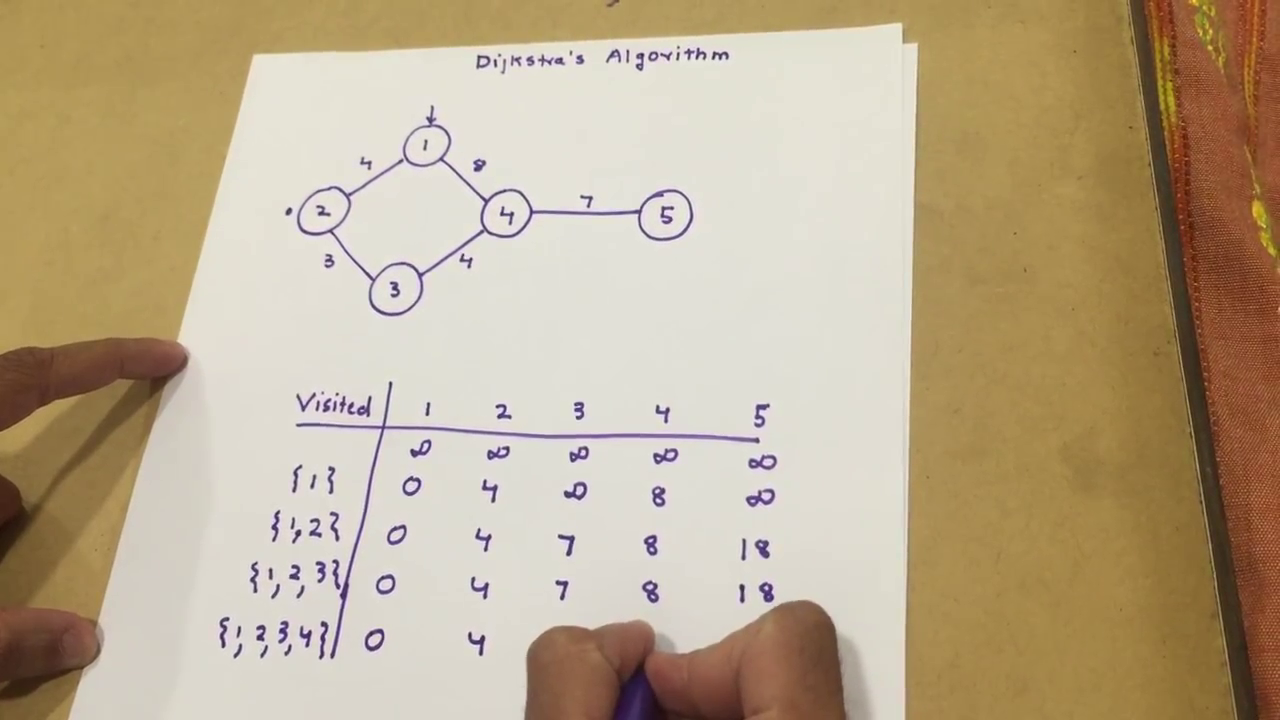 Dijkstra's Algorithm
1
4 8
2 4 7 5
3 4
3
Visited 1 2 3 4 5
∞ ∞ ∞ ∞ ∞
{1} 0 4 ∞ 8 ∞
{1,2} 0 4 7 8 18
{1,2,3} 0 4 7 8 18
{1,2,3,4} 0 4